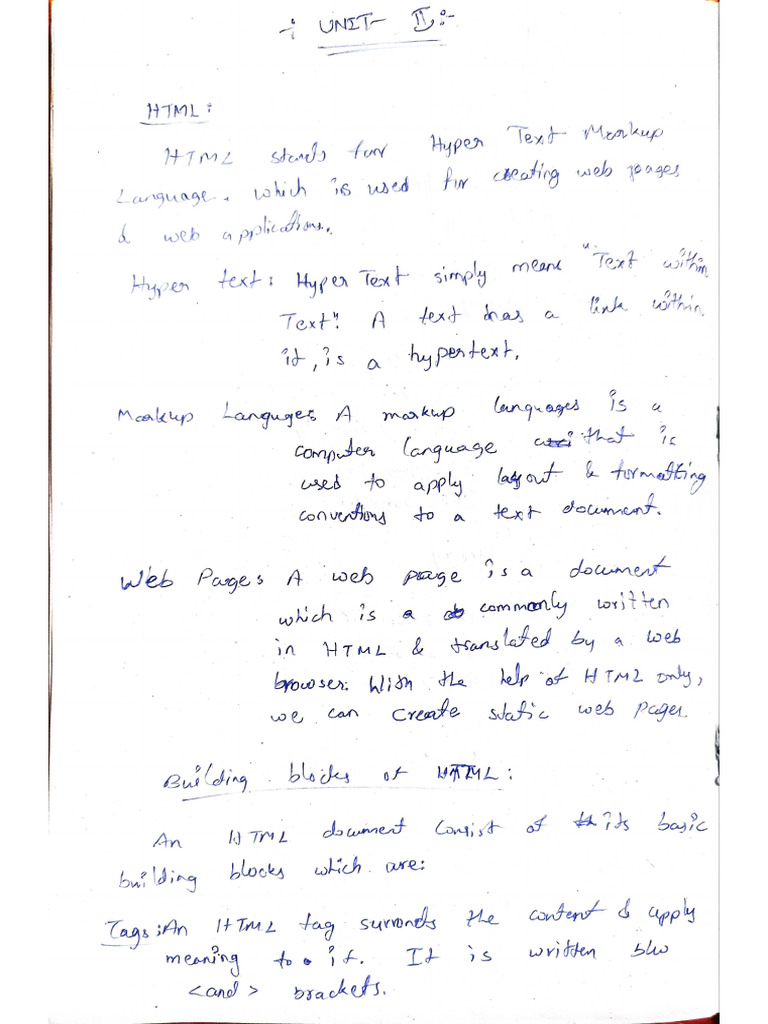 -: UNIT- II :-
HTML:
HTML stands for Hyper Text Markup
Language. which is used for creating web pages
& web applications.
Hyper text: Hyper Text simply means "Text within
Text". A text has a link within
it, is a hypertext.
Markup Languges: A markup languages is a
computer language that is
used to apply layout & formatting
conventions to a text document.
Web Pages A web page is a document
which is a commonly written
in HTML & translated by a web
browser. With the help of HTML only,
we can create static web pages.
Building blocks of HTML:
An HTML document consist of its basic
building blocks which are:
Tags: An HTML tag surronds the content & apply
meaning to it. It is written b/w
<and> brackets.